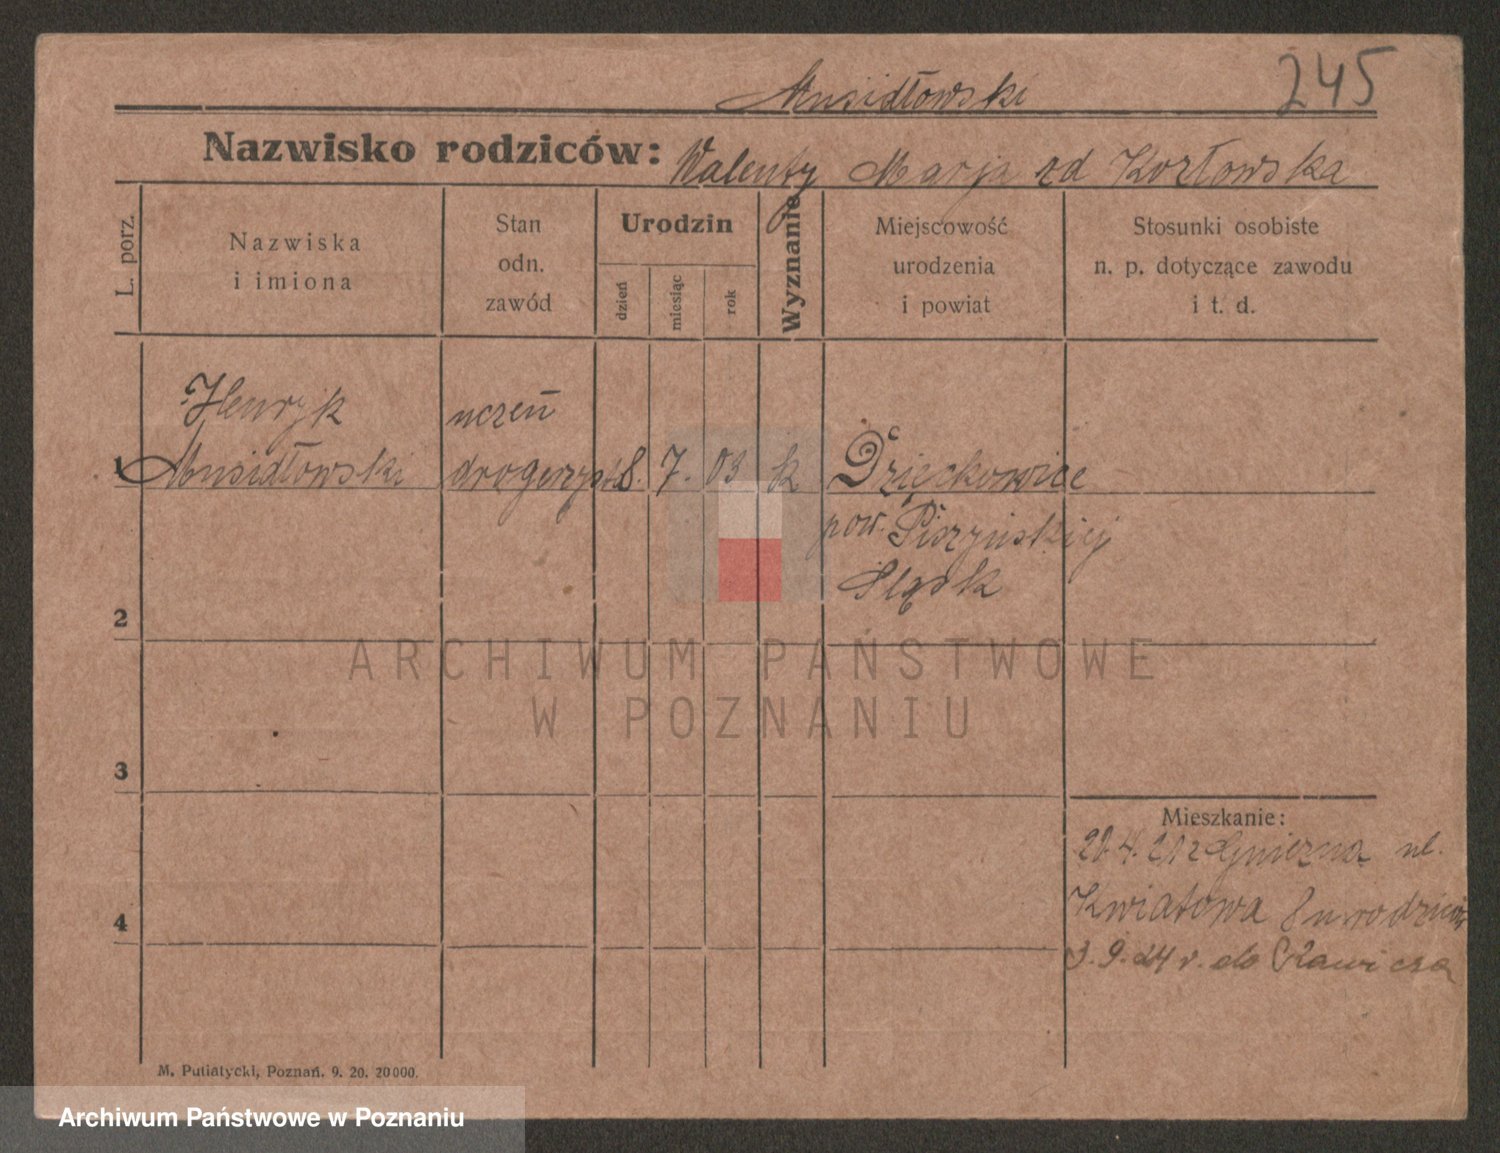 245
Musidłowski
Nazwisko rodziców: Walenty Marja zd Kozłowska
L. porz.
Nazwiska
i imiona
Stan
odn.
zawód
Urodzin
dzień
miesiąc
rok
Wyznanie
Miejscowość
urodzenia
i powiat
Stosunki osobiste
n. p. dotyczące zawodu
i t. d.
Henryk uczeń
1 Musidłowski drogerzysta 8. 7. 03 k Dzięckowice
pow. Pszczyńskiej
Śląsk
2
3
4
Mieszkanie:
20.4.21 z Gniezna ul.
Kwiatowa 8 u rodziców
3.9.24 r. do Rawicza
M. Putiatycki, Poznań. 9. 20. 20000.
ARCHIWUM PAŃSTWOWE
W POZNANIU
Archiwum Państwowe w Poznaniu